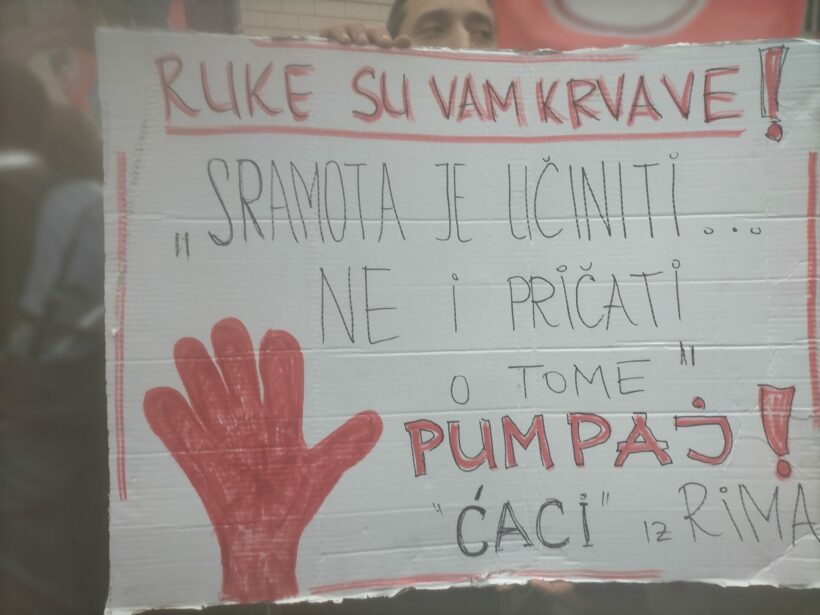 RUKE SU VAM KRVAVE!
„SRAMOTA JE UČINITI...
NE i PRIČATI
O TOME"
PUMPAJ!
"ĆACi" iz RiMA